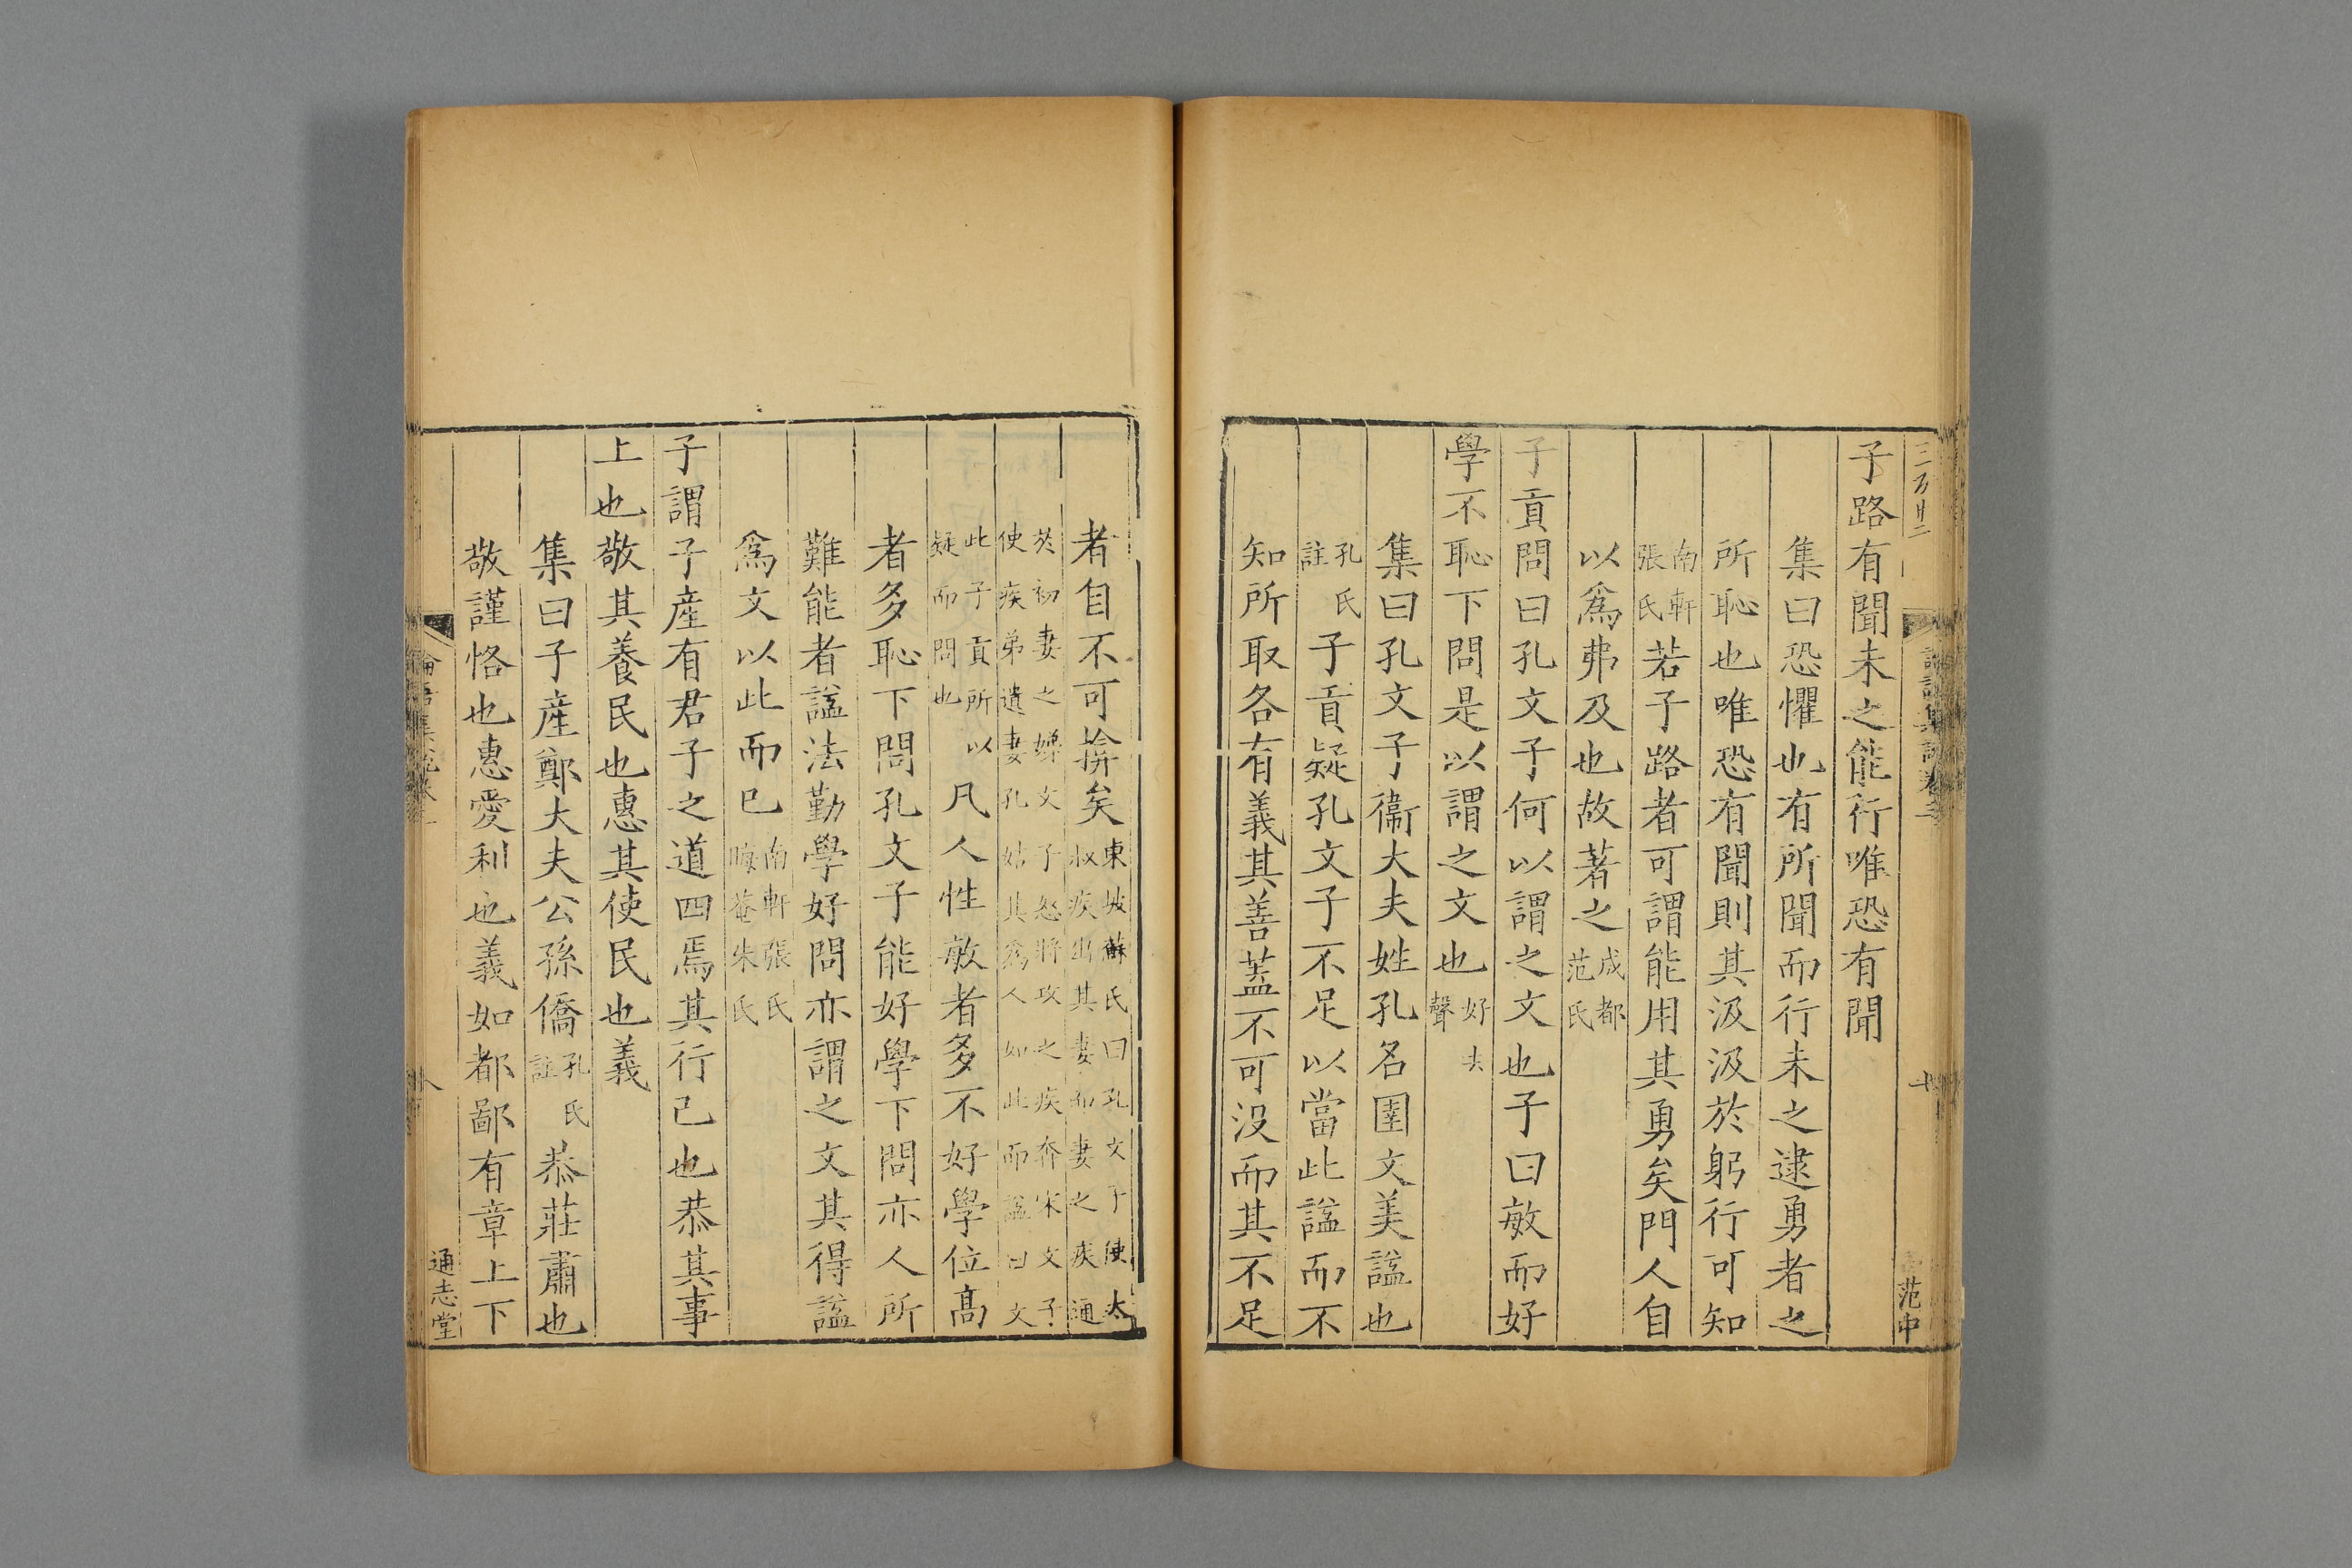 子路有聞未之能行唯恐有聞
集曰恐懼也有所聞而行未之逮勇者之
所恥也唯恐有聞則其汲汲於躬行可知
南軒張氏若子路者可謂能用其勇矣門人自
以爲弗及也故著之成都范氏
子貢問曰孔文子何以謂之文也子曰敏而好
學不恥下問是以謂之文也好去聲
集曰孔文子衞大夫姓孔名圉文美諡也
孔氏註子貢疑孔文子不足以當此諡而不
知所取各有義其善蓋不可没而其不足
范中
者自不可揜矣東坡蘇氏曰孔文子使太叔疾出其妻而妻之疾通
於初妻之娣文子怒將攻之疾奔宋文子使疾弟遺妻孔姞其爲人如此而諡曰文
此子貢所以疑而問也凡人性敏者多不好學位高
者多恥下問孔文子能好學下問亦人所
難能者諡法勤學好問亦謂之文其得諡
爲文以此而已南軒張氏晦菴朱氏
子謂子產有君子之道四焉其行己也恭其事
上也敬其養民也惠其使民也義
集曰子產鄭大夫公孫僑孔氏註恭莊肅也
敬謹恪也惠愛利也義如都鄙有章上下
通志堂